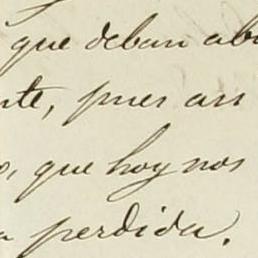 que deban ab
nte, pues asi
o, que hoy nos
a perdida.